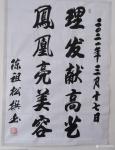 二〇二一年三月十七日
理发献高艺
鳳凰亮美容
陈祖松撰书